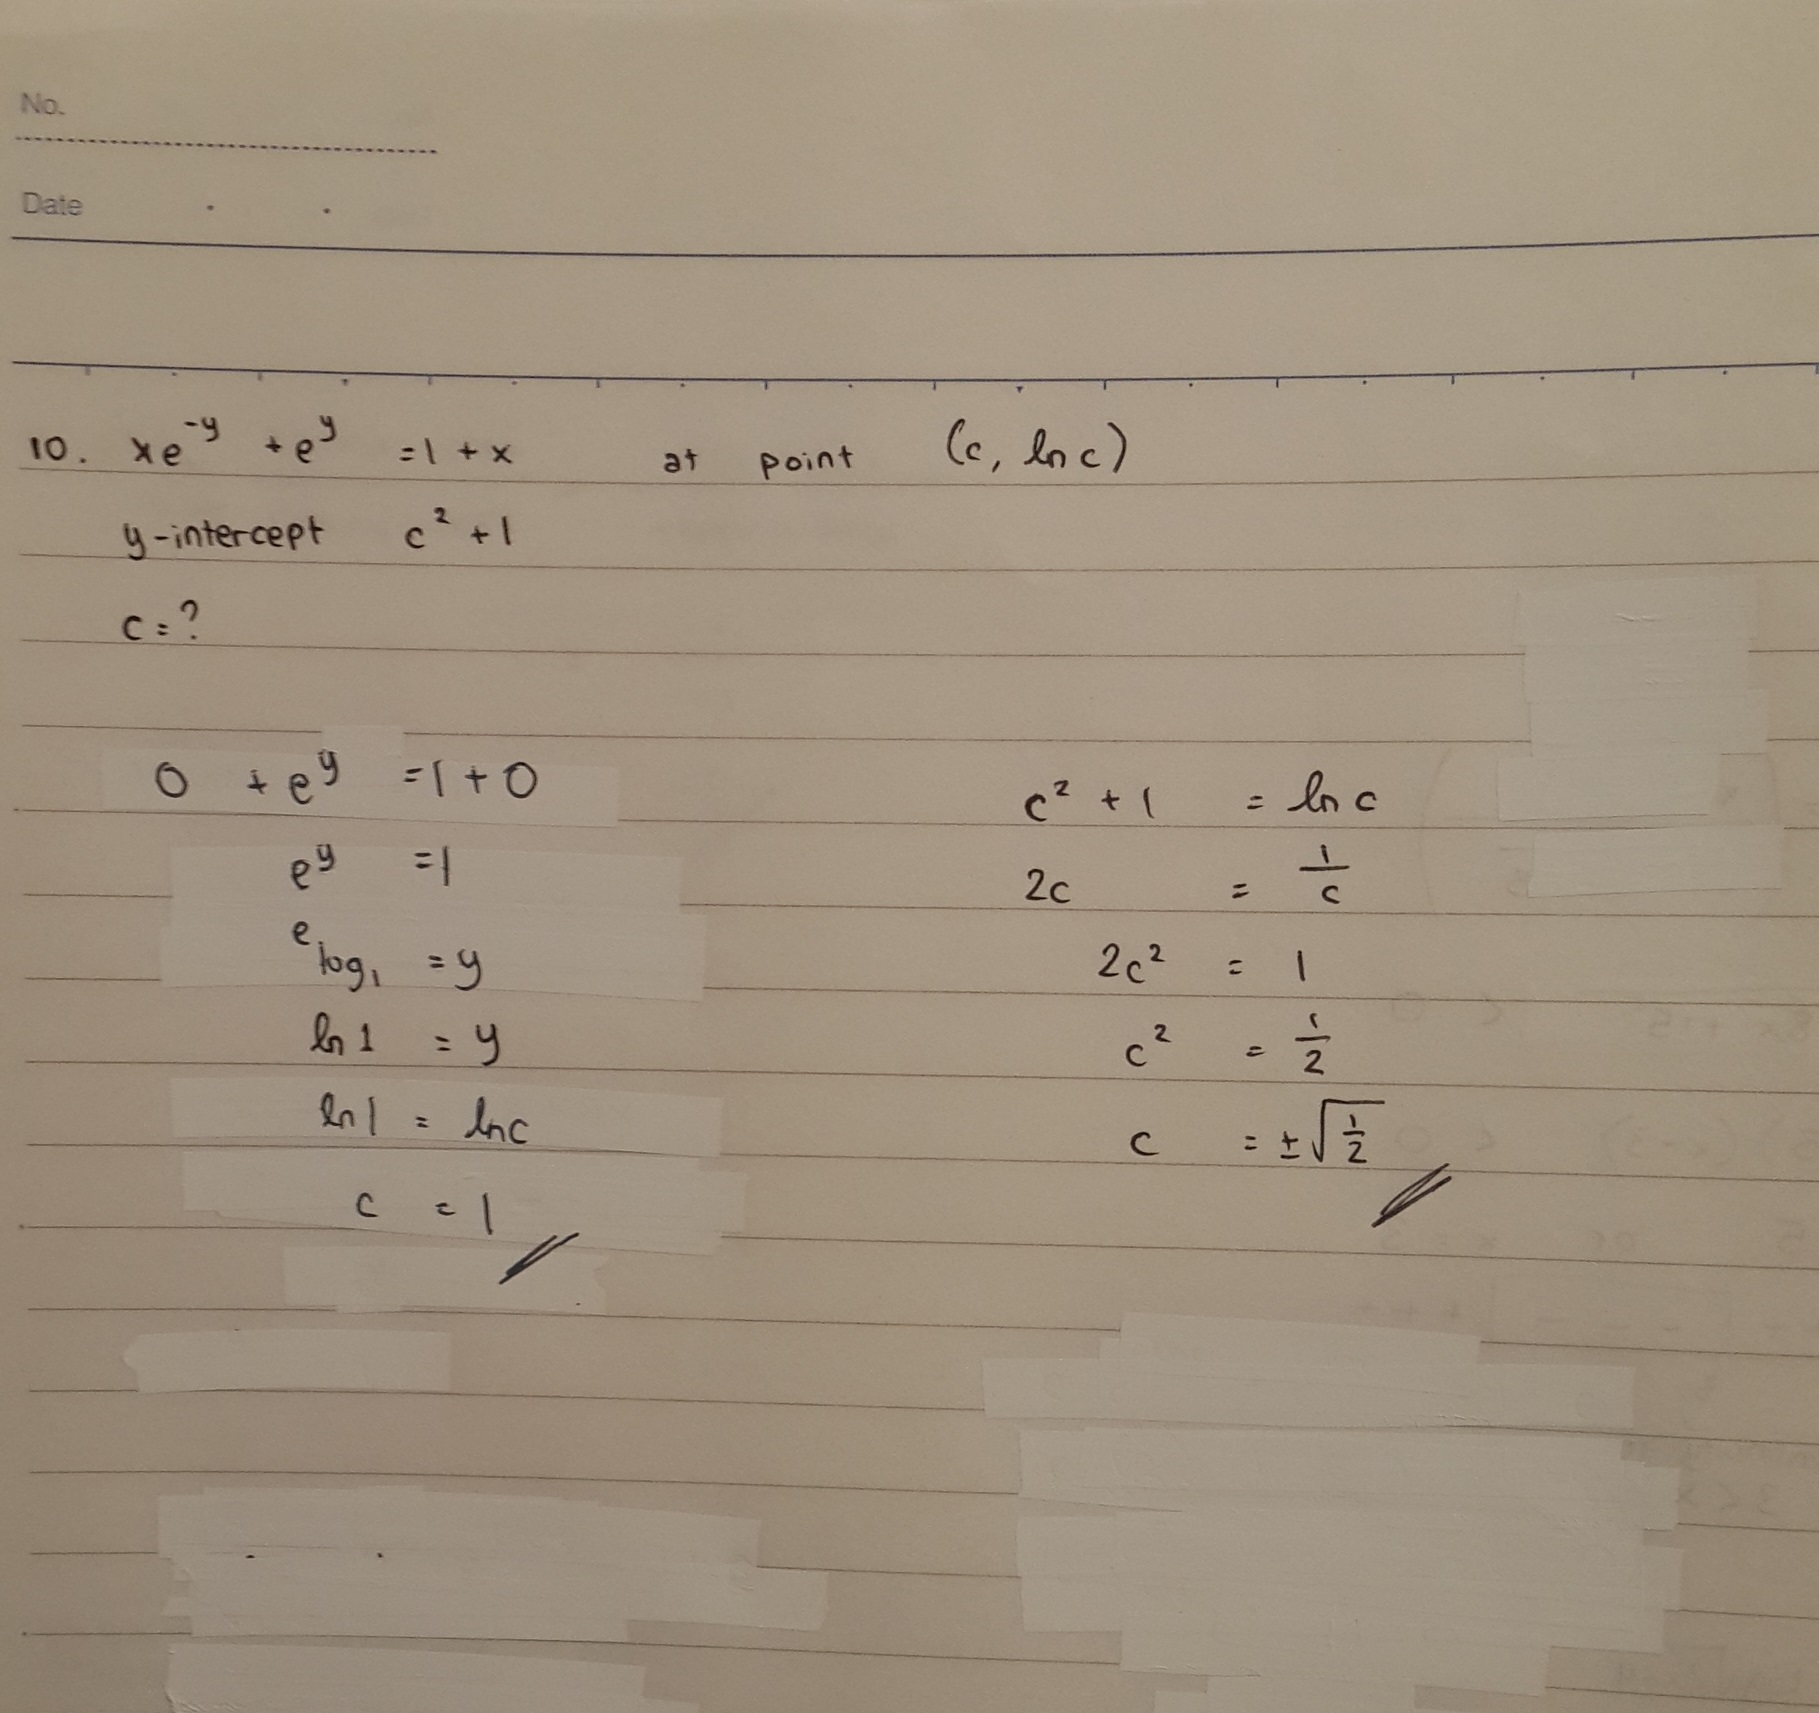 No.
Date
10. xe^-y + e^y = 1 + x at point (c, ln c)
y-intercept c² + 1
c = ?
0 + e^y = 1 + 0
e^y = 1
e log₁ = y
ln 1 = y
ln 1 = ln c
c = 1
c² + 1 = ln c
2c = 1/c
2c² = 1
c² = 1/2
c = ±√(1/2)